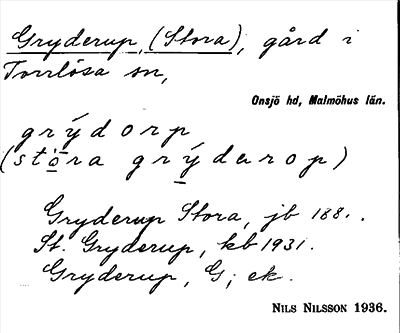 Gryderup, (Stora), gård i
Torrlösa sn,
Onsjö hd, Malmöhus län.
grýdorp
(stọ̀ra grý̱derop)
Gryderup Stora, jb 188..
St. Gryderup, kb 1931.
Gryderup, G; ek.
NILS NILSSON 1936.